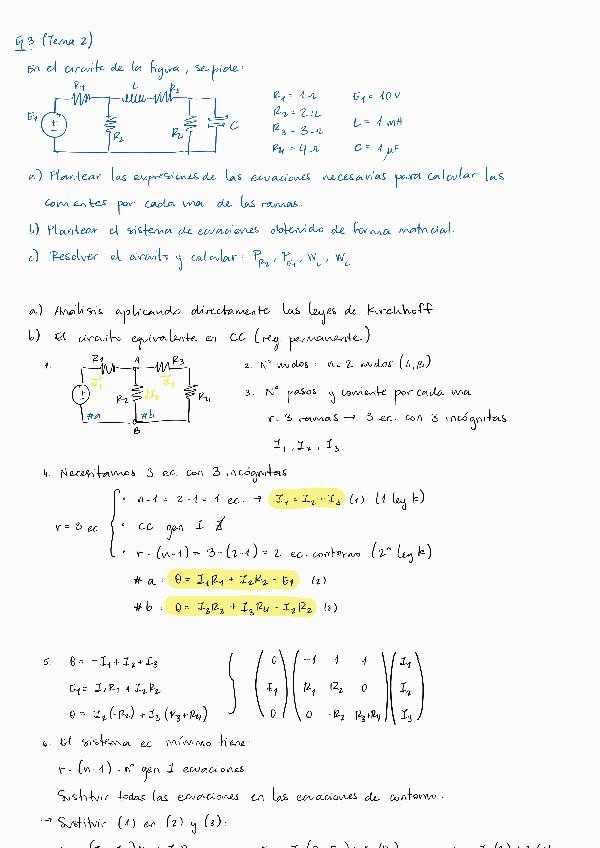 Ej 3 (Tema 2)
En el circuito de la figura, se pide:
R1 L R3
E1 R2 R2 C
R1 = 1Ω E1 = 10V
R2 = 2Ω
R3 = 3Ω L = 1 mH
R4 = 4Ω C = 1 μF
a) Plantear las expresiones de las ecuaciones necesarias para calcular las
corrientes por cada una de las ramas.
b) Plantear el sistema de ecuaciones obtenido de forma matricial.
c) Resolver el circuito y calcular: PR2, PE1, WL, Wc
a) Análisis aplicando directamente las leyes de Kirchhoff
b) El circuito equivalente en CC (reg permanente)
1. R1 A R3
I1 I2 I3
R2 R4
#a #b
B
2. Nº nudos: n=2 nudos (A,B)
3. Nº pasos y corriente por cada una
r=3 ramas → 3 ec. con 3 incógnitas
I1, I2, I3
4. Necesitamos 3 ec. con 3 incógnitas
r=3 ec
· n-1 = 2-1 = 1 ec. → I1 = I2 - I3 (1) (1 ley k)
· CC gen I
· r-(n-1) = 3-(2-1) = 2 ec. contorno (2ª ley k)
#a: 0 = I1R1 + I2R2 - E1 (2)
#b: 0 = I3R3 + I3R4 - I2R2 (3)
5. 0 = -I1 + I2 + I3
E1 = I1R1 + I2R2
0 = I2(-R2) + I3(R3+R4)
0 -1 1 1 I1
I1 R1 R2 0 I2
0 0 -R2 R3+R4 I3
6. El sistema ec mínimo tiene:
r-(n-1) - nº gen I ecuaciones
Sustituir todas las ecuaciones en las ecuaciones de contorno.
→ Sustituir (1) en (2) y (3):